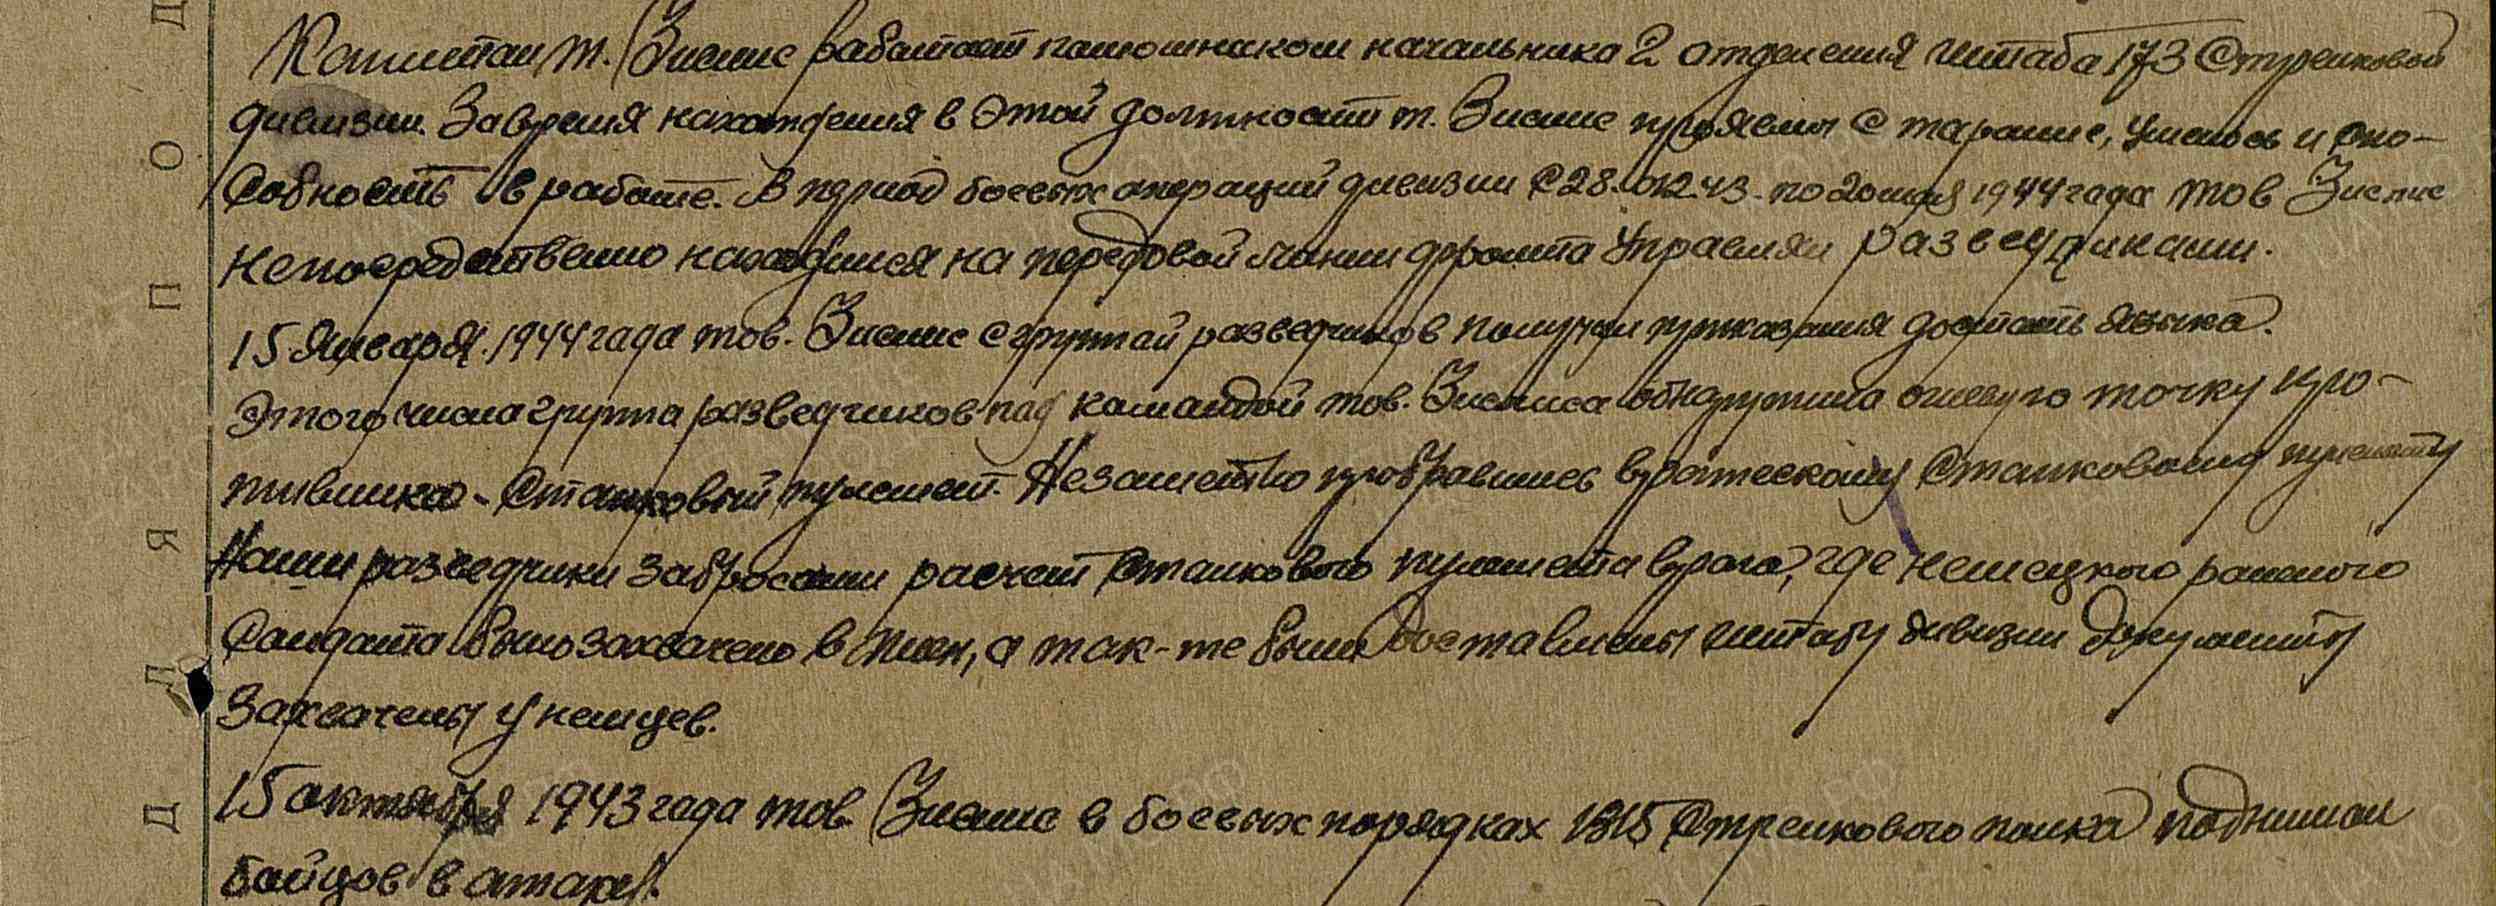 Капитан т. Зислис работает помошником начальника 2 отделения штаба 173 Стрелковой
дивизии. За время нахождения в этой должности т. Зислис проявил старание, умелось и спо-
собность в работе. В период боевых операций дивизии с 28. 43. по 20 мая 1944 года тов Зислис
непосредственно находился на передовой линии фронта управлял разведчиками.
15 января. 1944 года тов. Зислис с группой разведчиков получил приказания достать языка.
Этого числа группа разведчиков под командой тов. Зислиса обнаружила огневую точку про-
тивника - станковый пулемет. Незаметно пробравшись к вражескому станковому пулемету
Наши разведчики забросали расчет станкового пулемета врага, где немецкого раненого
солдата было захвачено в плен, а так-же были доставлены штабу дивизии документы
захвачены у немцев.
15 октября 1943 года тов. Зислис в боевых порядках 1315 Стрелкового полка поднимал
бойцов в атаку.
Д
О
П
Я
Л
Д